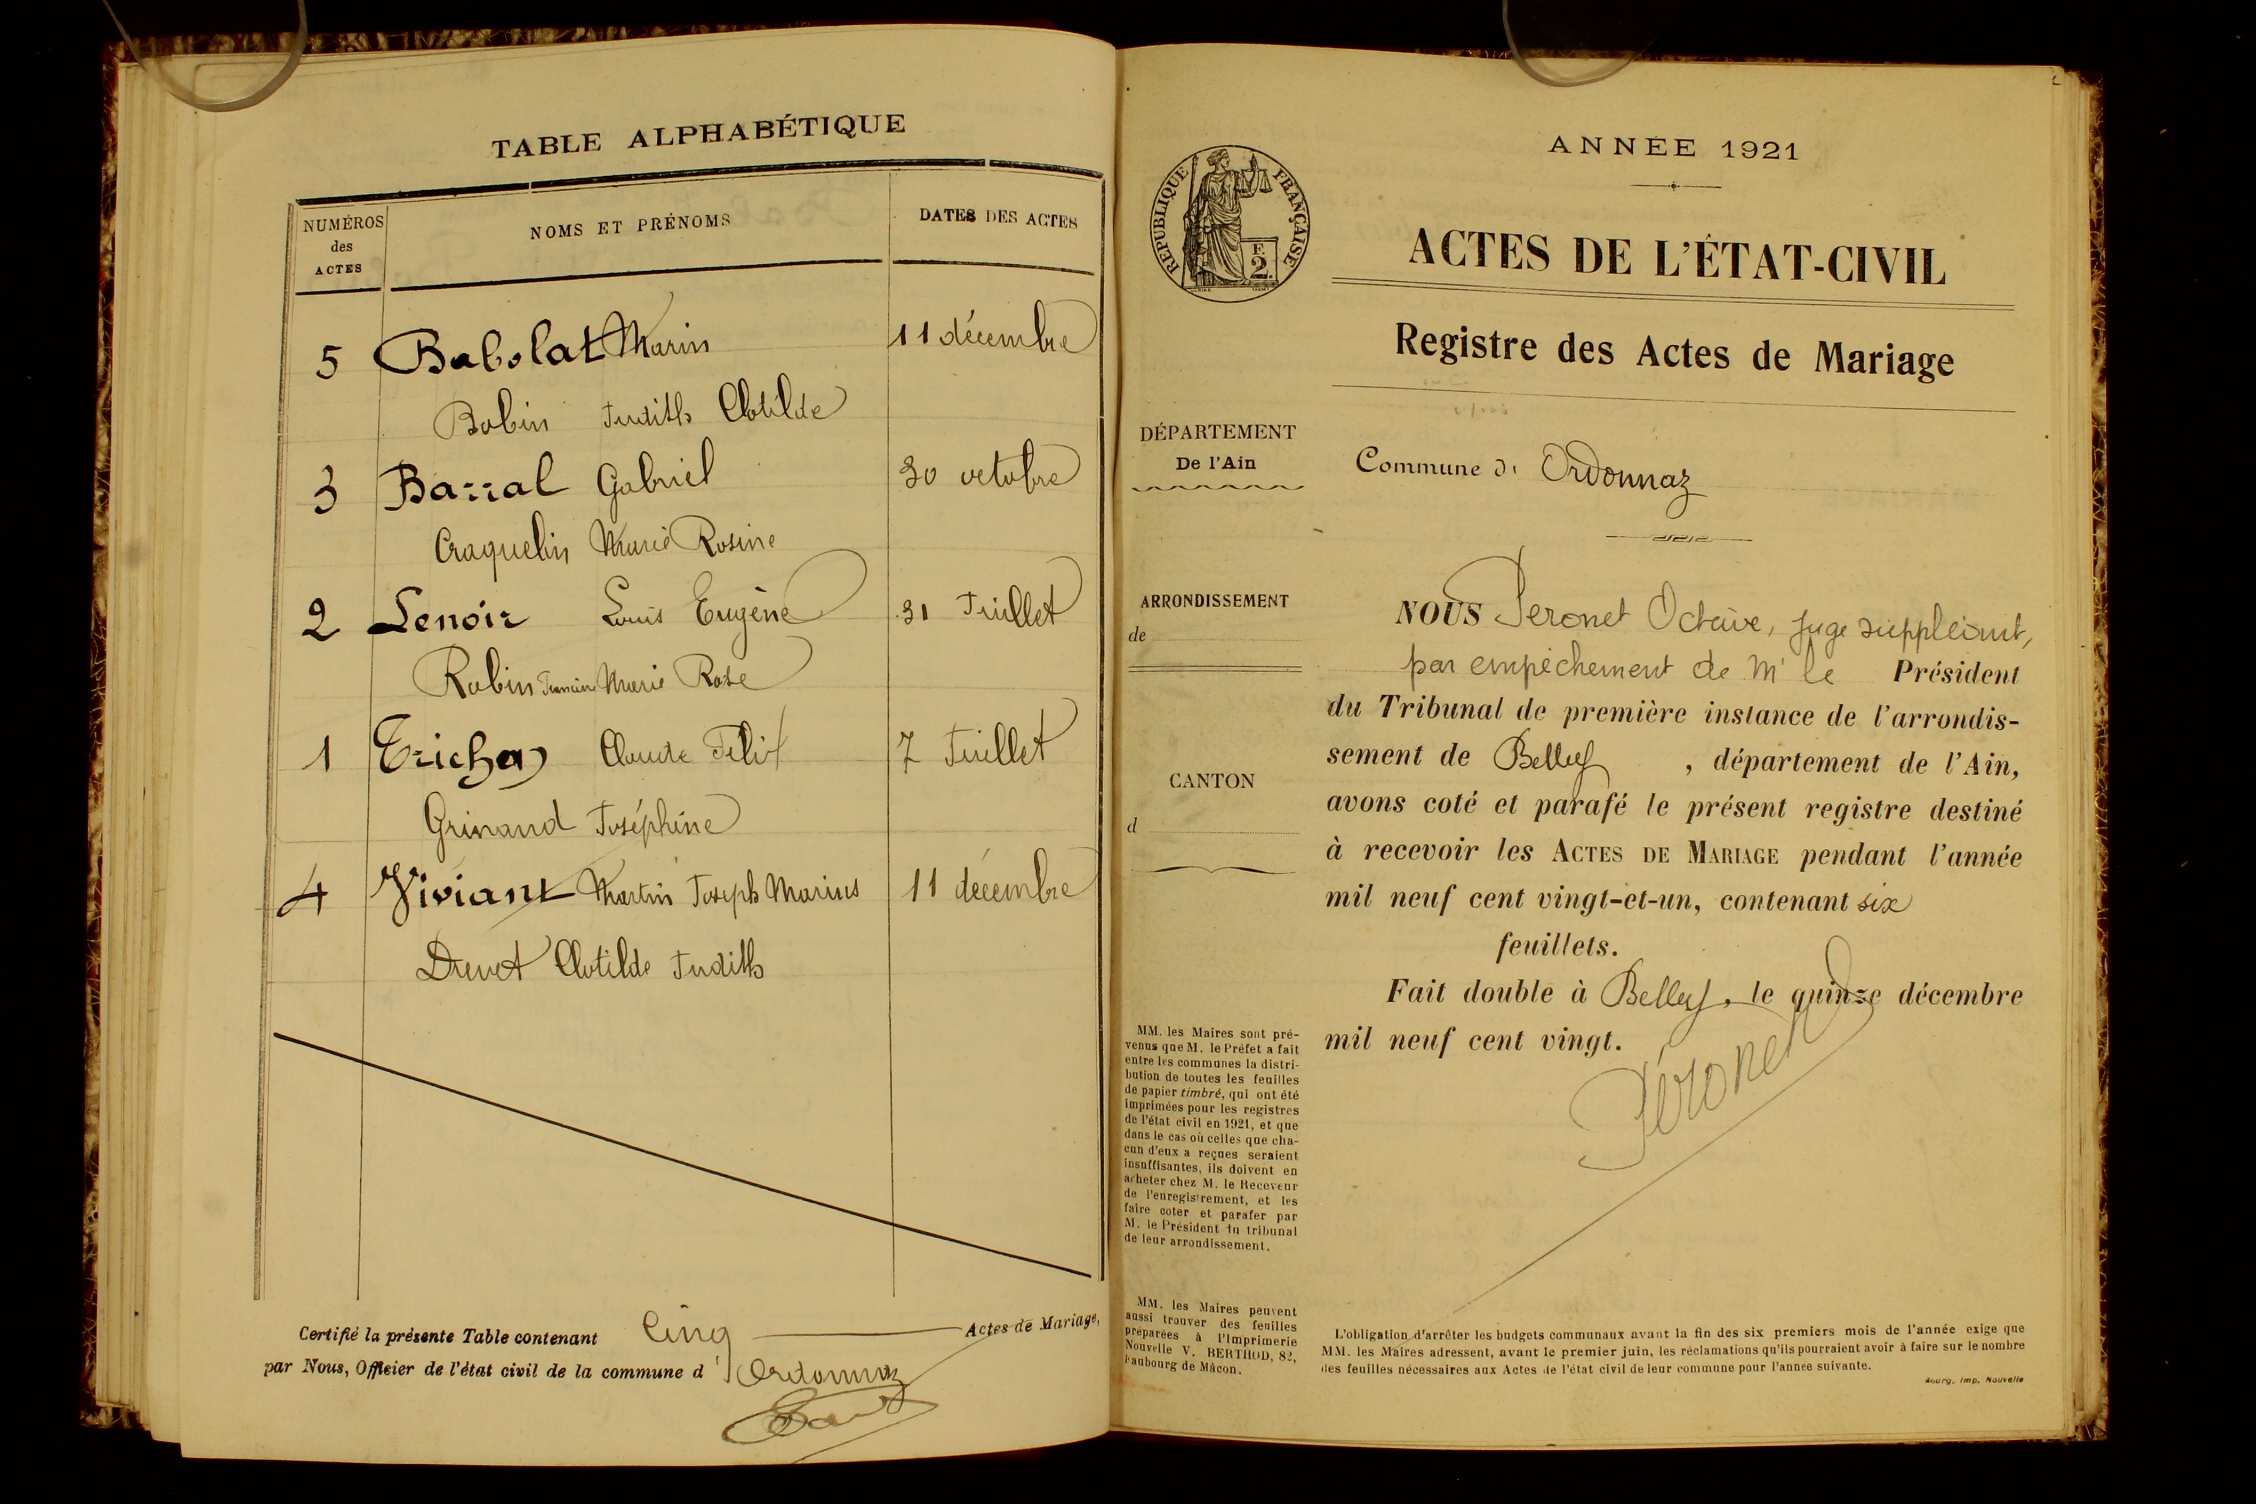 TABLE ALPHABÉTIQUE
NUMÉROS des ACTES
NOMS ET PRÉNOMS
DATES DES ACTES
5 Babolat Marin 11 décembre
Bobin Judith Clotilde
3 Barral Gabriel 30 octobre
Craquelin Marie Rosine
2 Lenoir Louis Eugène 31 Juillet
Robin Marie Rose
1 Trichon Claude Félix 7 Juillet
Grinand Joséphine
4 Viviant Martin Joseph Marius 11 décembre
Drevet Clotilde Judith
Certifié la présente Table contenant Cinq Actes de Mariage,
par Nous, Officier de l'état civil de la commune d'Ordonnaz
ANNÉE 1921
RÉPUBLIQUE FRANÇAISE
F. 2.
ACTES DE L'ÉTAT-CIVIL
Registre des Actes de Mariage
DÉPARTEMENT
De l'Ain
Commune d' Ordonnaz
ARRONDISSEMENT
de
CANTON
d
NOUS Peronet Octave, juge suppléant,
par empêchement de Mr le Président
du Tribunal de première instance de l'arrondis-
sement de Belley, département de l'Ain,
avons coté et parafé le présent registre destiné
à recevoir les ACTES DE MARIAGE pendant l'année
mil neuf cent vingt-et-un, contenant six
feuillets.
Fait double à Belley, le quinze décembre
mil neuf cent vingt.
Péronet
MM. les Maires sont pré-
venus que M. le Préfet a fait
entre les communes la distri-
bution de toutes les feuilles
de papier timbré, qui ont été
imprimées pour les registres
de l'état civil en 1921, et que
dans le cas où celles que cha-
cun d'eux a reçues seraient
insuffisantes, ils doivent en
acheter chez M. le Receveur
de l'enregistrement, et les
faire coter et parafer par
M. le Président du tribunal
de leur arrondissement.
MM. les Maires peuvent
aussi trouver des feuilles
préparées à l'Imprimerie
Nouvelle V. BERTHOD, 82,
Faubourg de Mâcon.
L'obligation d'arrêter les budgets communaux avant la fin des six premiers mois de l'année exige que
MM. les Maires adressent, avant le premier juin, les réclamations qu'ils pourraient avoir à faire sur le nombre
des feuilles nécessaires aux Actes de l'état civil de leur commune pour l'année suivante.
Bourg, Imp. Nouvelle